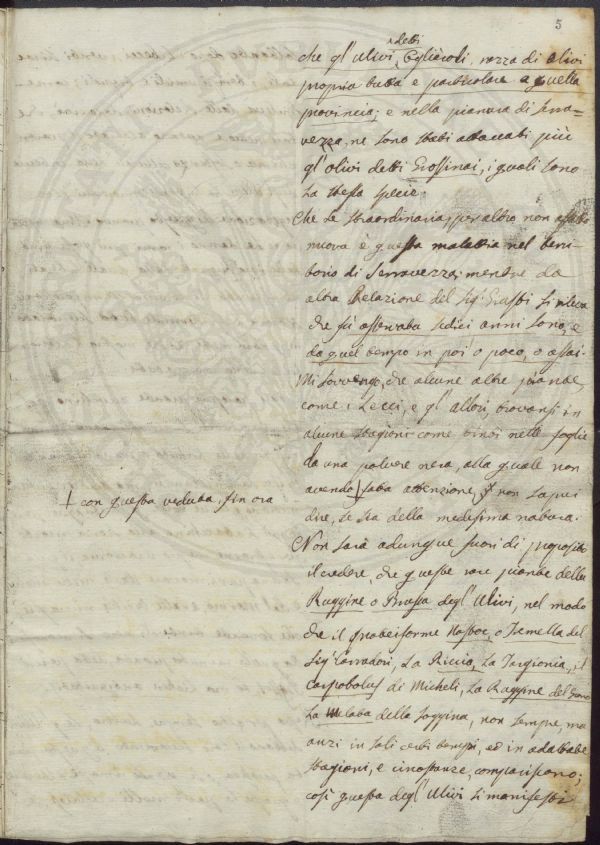 5
detti
che gl'Ulivi, Cigliéroli, razza di olivi
propria tutta e particolare a quella
provincia; e nella pianura di Serra=
vezza, ne sono stati attaccati più
gl'olivi detti Grossinai, i quali sono
La stessa specie.
Che se straordinaria, per altro non affatto
nuova è questa malattia nel terri=
torio di Serravezza; mentre da
altra Relazione del Sig.r si
che fù osservata sedici anni sono, e
da quel tempo in poi o poco, o assai.
Mi sovvengo, che alcune altre piante,
come i Lecci, e gl'allori, trovansi in
alcune stagioni come tinti nelle foglie
da una polvere nera, alla quale non
avendo † fatta attenzione, non saprei
† con questa veduta, fin ora
dire, se sia della medesima natura.
Non sarà adunque fuori di proposito
il credere, che queste rare piante della
Ruggine o degl'Ulivi, nel modo
che il Nostoc, o Tremella del
Sig.r Corradori, La Riccia, La Targionia, il
Carpobolus di Micheli, La Ruggine del Grano
La della Saggina, non sempre, ma
anzi in soli certi tempi, ed in adattate
stagioni, e circostanze, compariscono;
così questa degl'Ulivi si manifesti